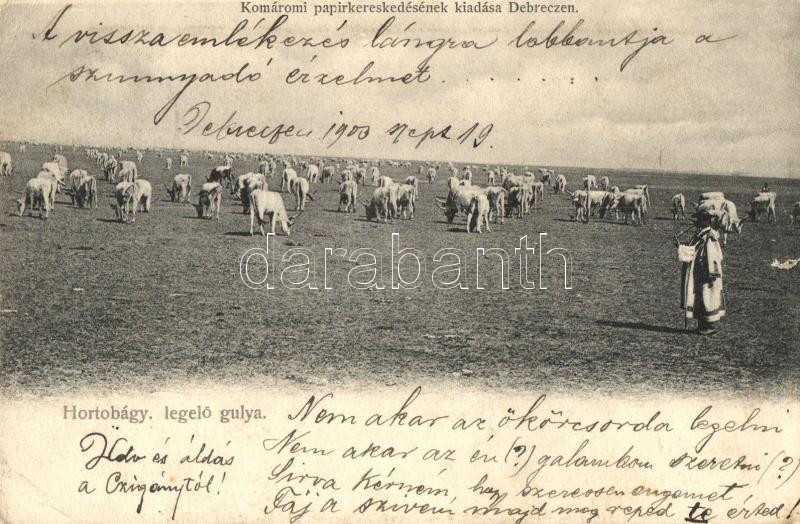 Komáromi papirkereskedésének kiadása Debreczen.
A visszaemlékezés lángra lobbantja a
szunnyadó érzelmet . . . . . . .
Debreczen 1903 Szept 19.
darabanth
Hortobágy. legelő gulya.
Üdv és áldás
a Czigánytól!
Nem akar az ökörcsorda legelni
Nem akar az én (?) galambom szeretni (?)
Sirva kérném, hogy szeressen engemet
Fáj a szivem majd meg reped te érted!